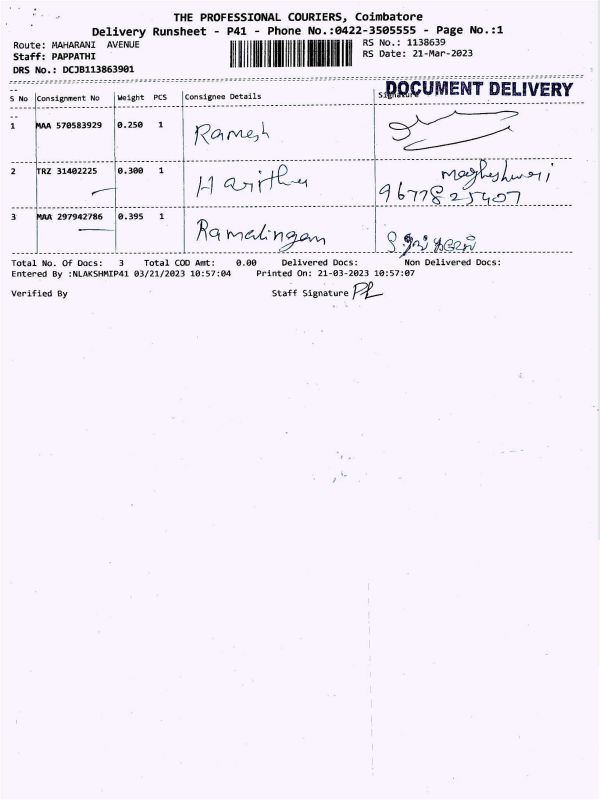 THE PROFESSIONAL COURIERS, Coimbatore
Delivery Runsheet - P41 - Phone No.:0422-3505555 - Page No.:1
Route: MAHARANI AVENUE
Staff: PAPPATHI
DRS No.: DCJB113863901
RS No.: 1138639
RS Date: 21-Mar-2023
DOCUMENT DELIVERY
S No Consignment No Weight PCS Consignee Details Signature
1 MAA 570583929 0.250 1 Ramesh
2 TRZ 31402225 0.300 1 Haritha Magheshwari
9677825407
3 MAA 297942786 0.395 1 Ramalingam
Total No. Of Docs: 3 Total COD Amt: 0.00 Delivered Docs: Non Delivered Docs:
Entered By :NLAKSHMIP41 03/21/2023 10:57:04 Printed On: 21-03-2023 10:57:07
Verified By Staff Signature